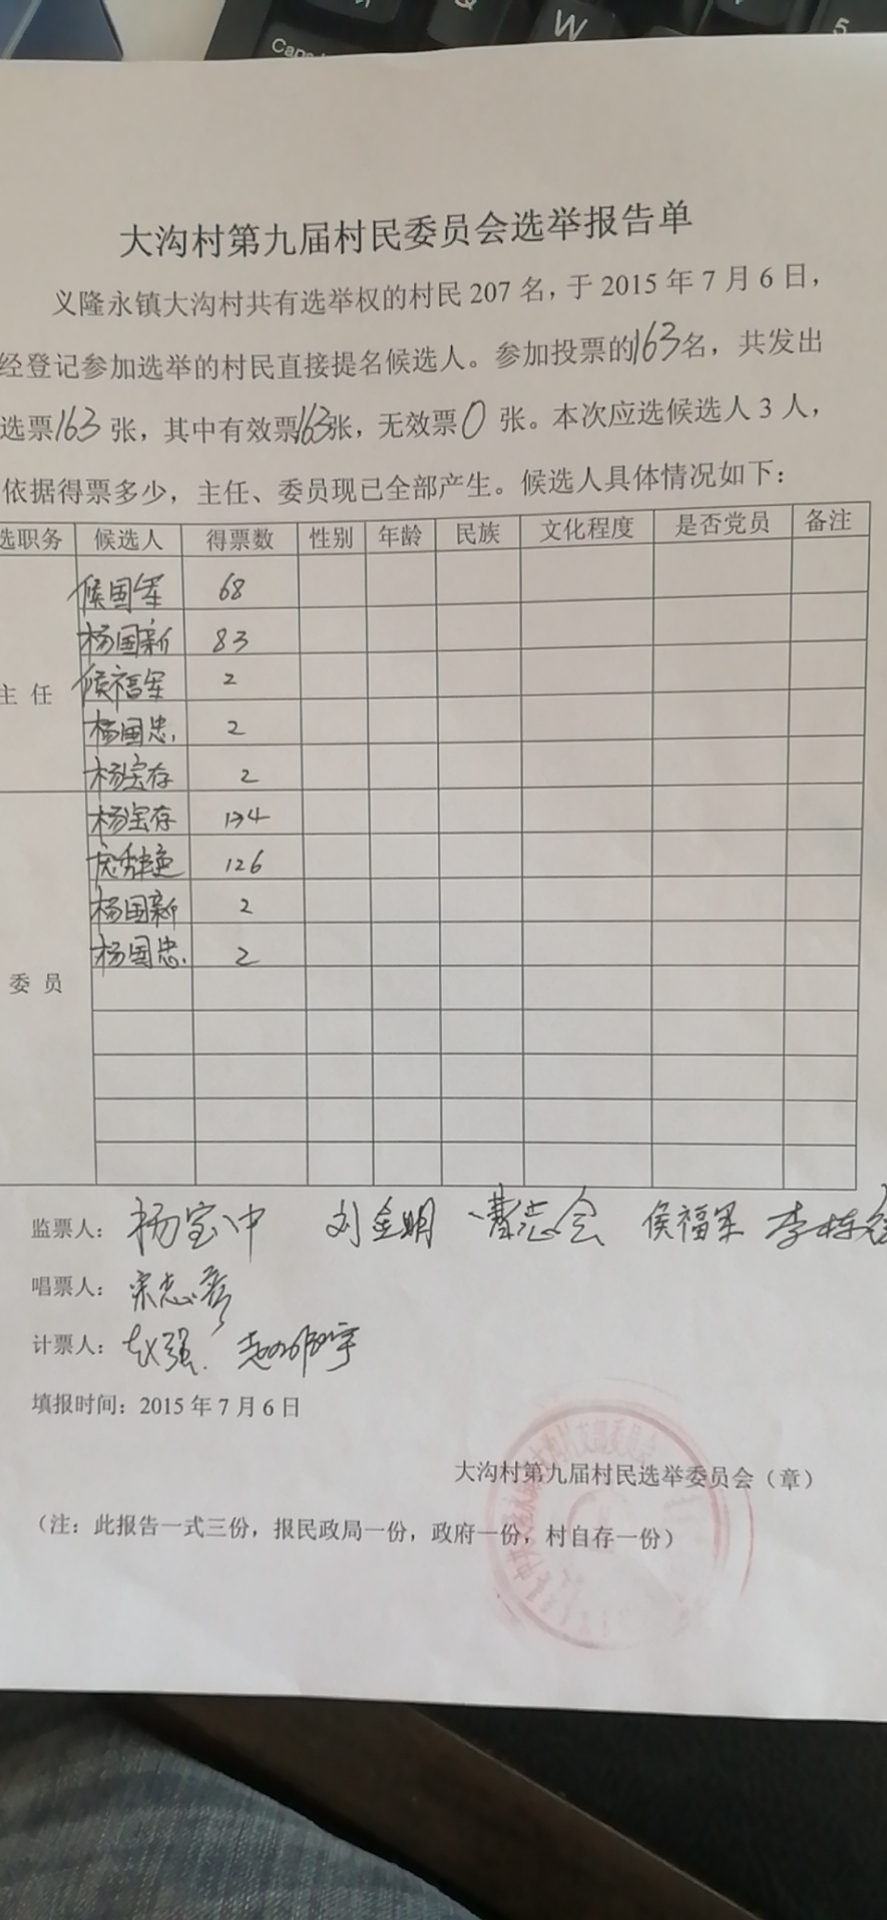 Caps
W
5
大沟村第九届村民委员会选举报告单
义隆永镇大沟村共有选举权的村民 207 名，于 2015 年 7 月 6 日，
经登记参加选举的村民直接提名候选人。参加投票的163名，共发出
选票163 张，其中有效票163张，无效票0 张。本次应选候选人 3 人，
依据得票多少，主任、委员现已全部产生。候选人具体情况如下：
选职务 候选人 得票数 性别 年龄 民族 文化程度 是否党员 备注
侯国军 68
杨国新 83
主 任 侯福军 2
杨国忠 2
杨宝存 2
杨宝存
126
杨国新 2
杨国忠 2
委 员
监票人： 杨宝中 刘金明 志会 侯福军 李栋
唱票人： 宋志彦
计票人： 赵强 宇
填报时间：2015 年 7 月 6 日
大沟村第九届村民选举委员会（章）
（注：此报告一式三份，报民政局一份，政府一份，村自存一份）